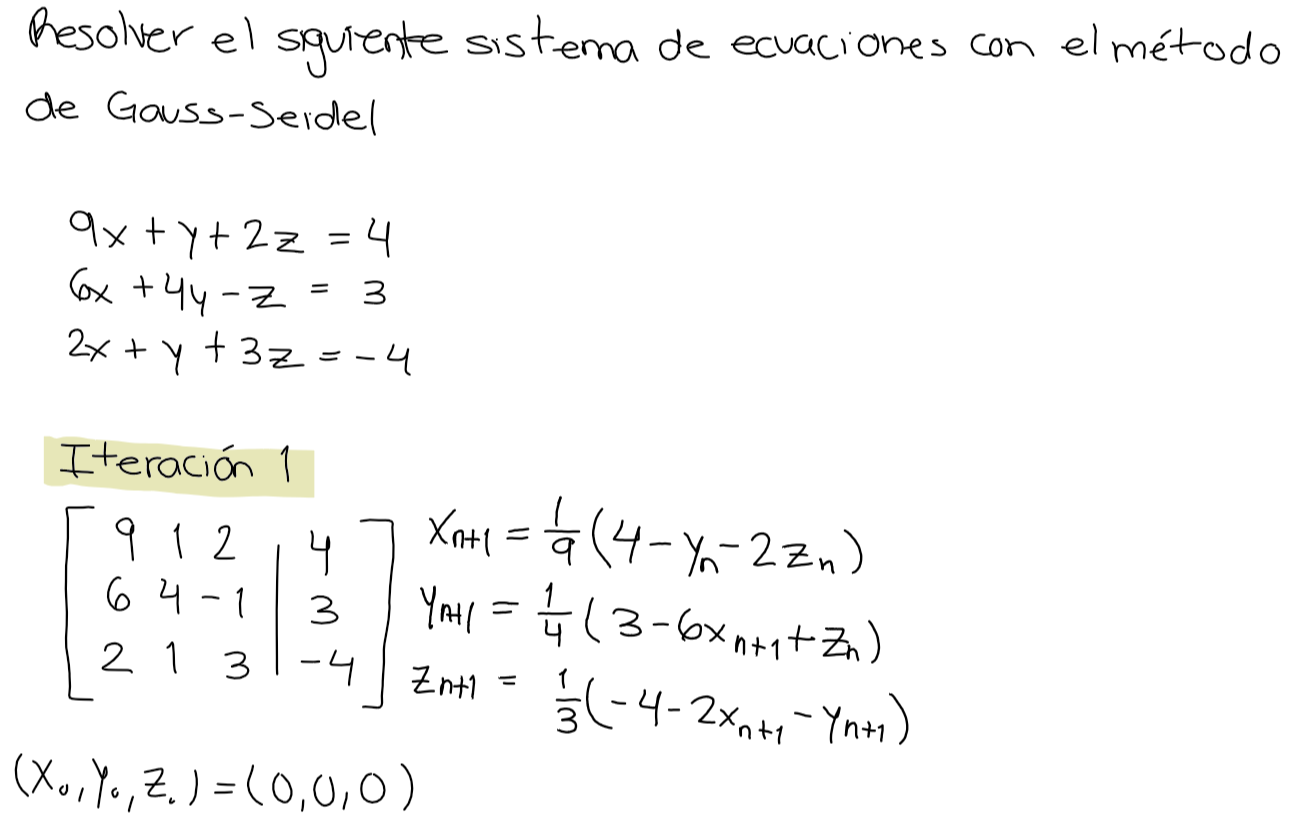 Resolver el siguiente sistema de ecuaciones con el método
de Gauss-Seidel
9x + y + 2z = 4
6x + 4y - z = 3
2x + y + 3z = -4
Iteración 1
[ 9 1 2 | 4 ] Xn+1 = 1/9 (4 - Yn - 2Zn)
[ 6 4 -1 | 3 ] Yn+1 = 1/4 (3 - 6Xn+1 + Zn)
[ 2 1 3 | -4 ] Zn+1 = 1/3 (-4 - 2Xn+1 - Yn+1)
(X₀, Y₀, Z₀) = (0, 0, 0)